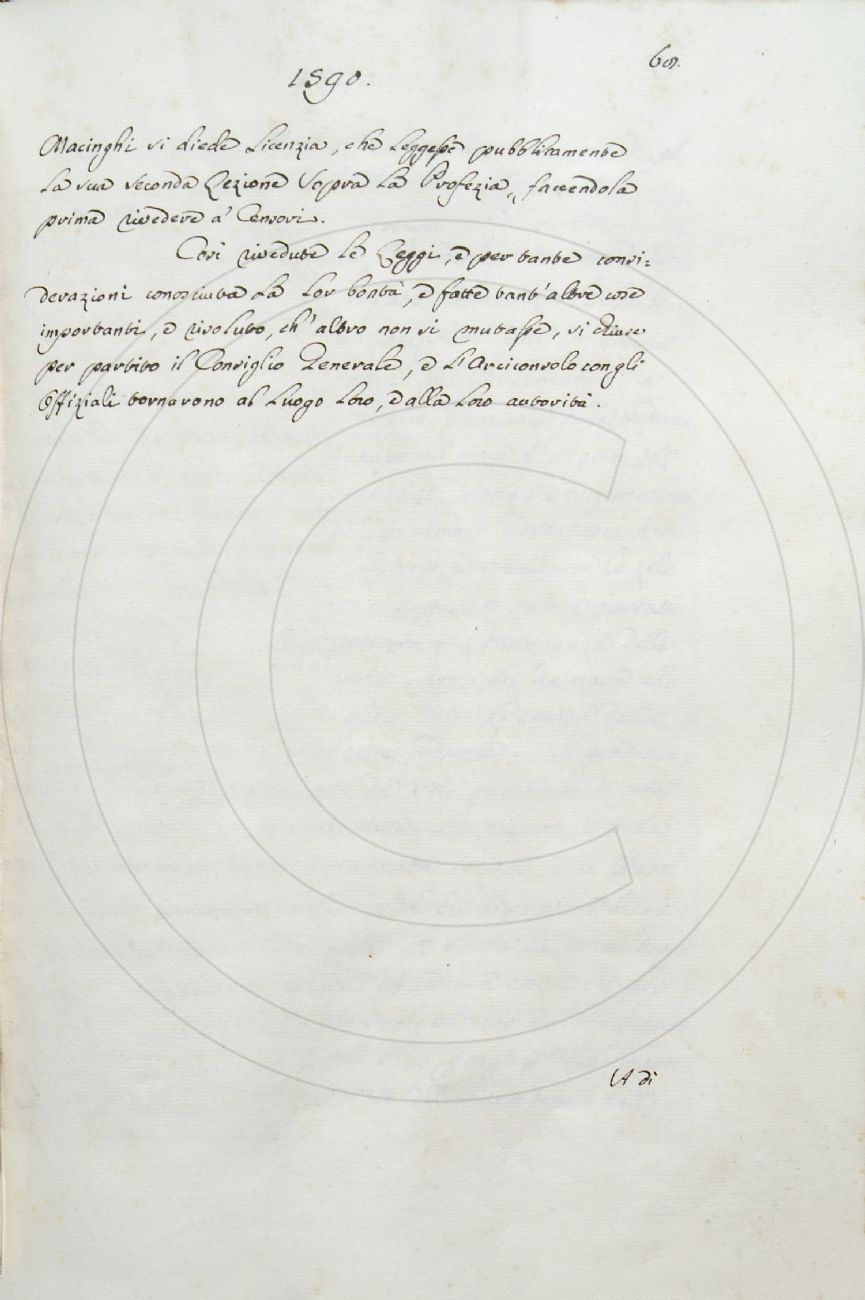 1590.
Macinghi si diede Licenzia, che Leggesse pubblicamente
La sua seconda Lezione sopra La Profezia, facendola
prima rivedere a' Censori.
Così rivedute Le Leggi, e per tante consi=
derazioni conosciuta La Lor bontà, e fatte tant' altre cose
importanti, e risoluto, ch' altro non si mutasse, si chiuse
per partito il Consiglio Generale, e L'Arciconsolo con gli
Offiziali tornarono al Luogo Loro, e alla Loro autorità.
A di